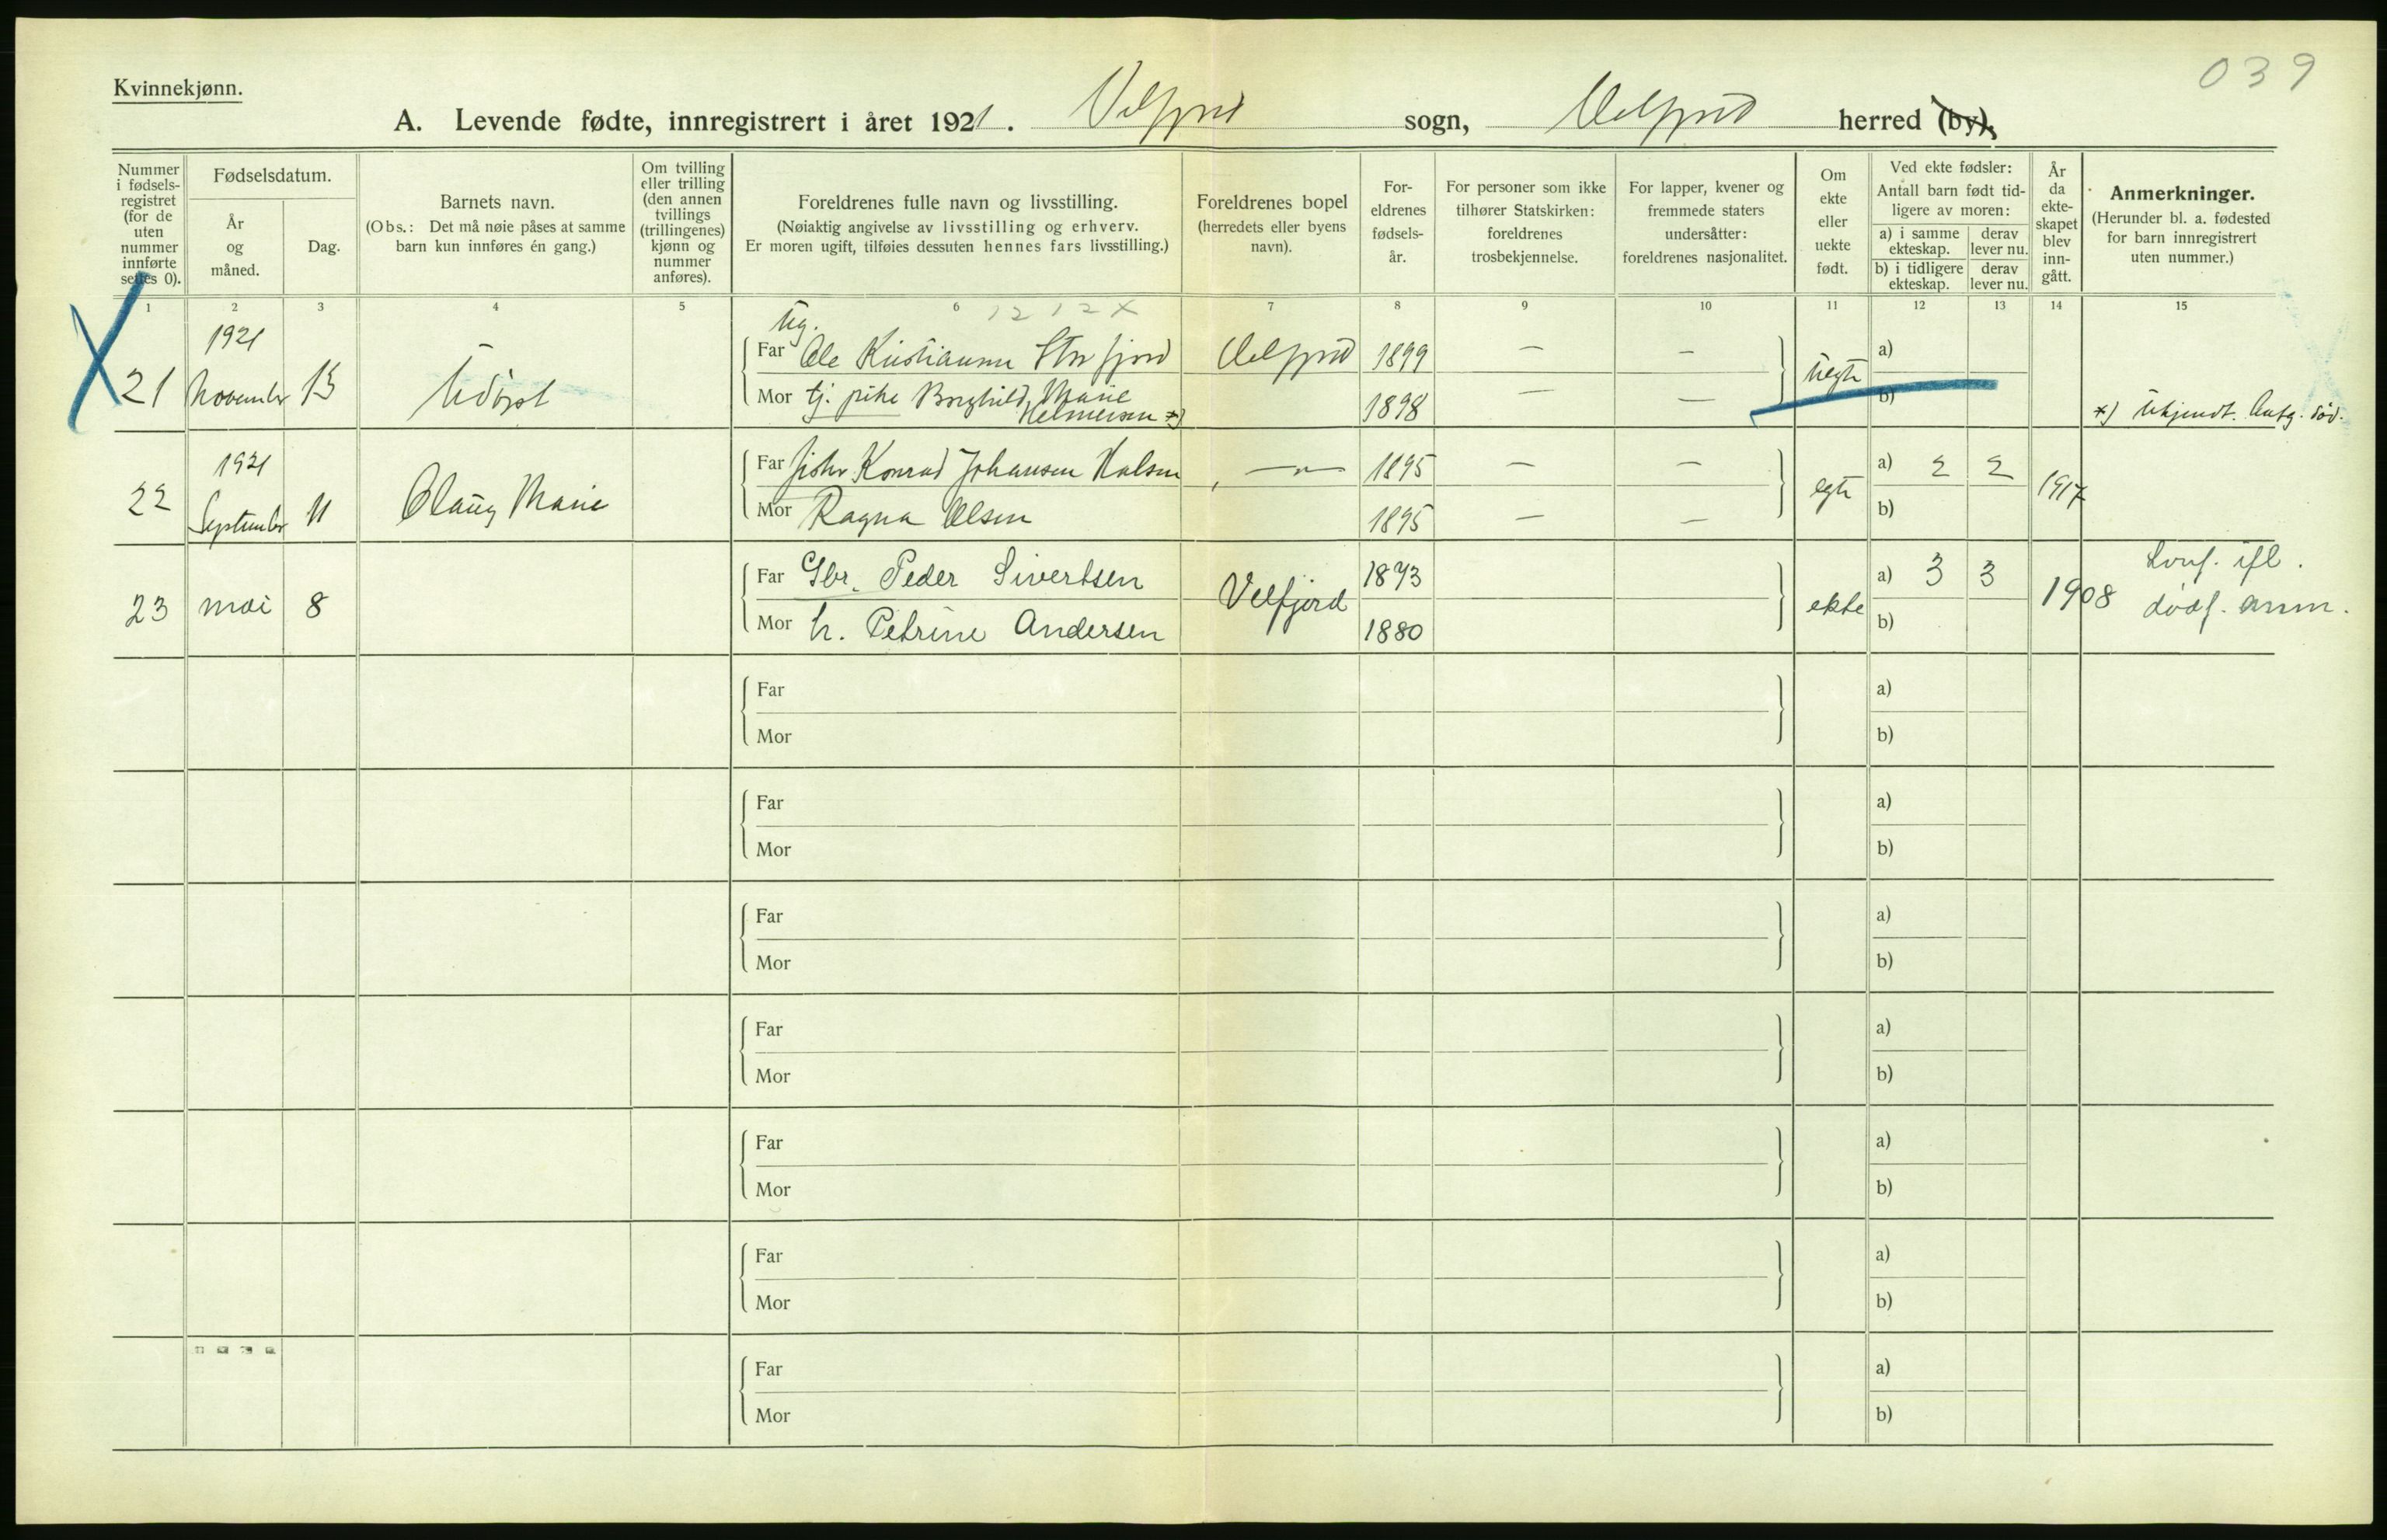 039
Kvinnekjønn.
A. Levende fødte, innregistrert i året 1921. Velfjord sogn, Velfjord herred (by),
Nummer i fødsels-registret (for de uten nummer innførte settes 0).
Fødselsdatum.
År og måned.
Dag.
Barnets navn.
(Obs.: Det må nøie påses at samme barn kun innføres én gang.)
Om tvilling eller trilling (den annen tvillings (trillingenes) kjønn og nummer anføres).
Foreldrenes fulle navn og livsstilling.
(Nøiaktig angivelse av livsstilling og erhverv.
Er moren ugift, tilføies dessuten hennes fars livsstilling.)
Foreldrenes bopel
(herredets eller byens navn).
For-eldrenes fødsels-år.
For personer som ikke tilhører Statskirken: foreldrenes trosbekjennelse.
For lapper, kvener og fremmede staters undersåtter: foreldrenes nasjonalitet.
Om ekte eller uekte født.
Ved ekte fødsler:
Antall barn født tid-ligere av moren:
a) i samme ekteskap.
derav lever nu.
b) i tidligere ekteskap.
derav lever nu.
År da ekte-skapet blev inn-gått.
Anmerkninger.
(Herunder bl. a. fødested for barn innregistrert uten nummer.)
1 2 3 4 5 6 7 8 9 10 11 12 13 14 15
1212X
X 21 1921 November 13 Udøpt
Ug.
Far Ole Kristiansen Storfjord Velfjord 1899 — — a)
Mor tj. pike Borghild Marie Helmersen *) 1898 — — uegte b)
*) Ukjendt. Antg. død.
22 1921 September 11 Olaug Marie
Far fisker Konrad Johansen Halsen —"— 1895 — — a) 2 2
Mor Ragna Olsen 1895 — — egte b) 1917
23 mai 8
Far Gbr. Peder Sivertsen Velfjord 1873 a) 3 3
Mor h. Petrine Andersen 1880 ekte b) 1908
ifl. dødf. anm.
Far a)
Mor b)
Far a)
Mor b)
Far a)
Mor b)
Far a)
Mor b)
Far a)
Mor b)
Far a)
Mor b)
Far a)
Mor b)